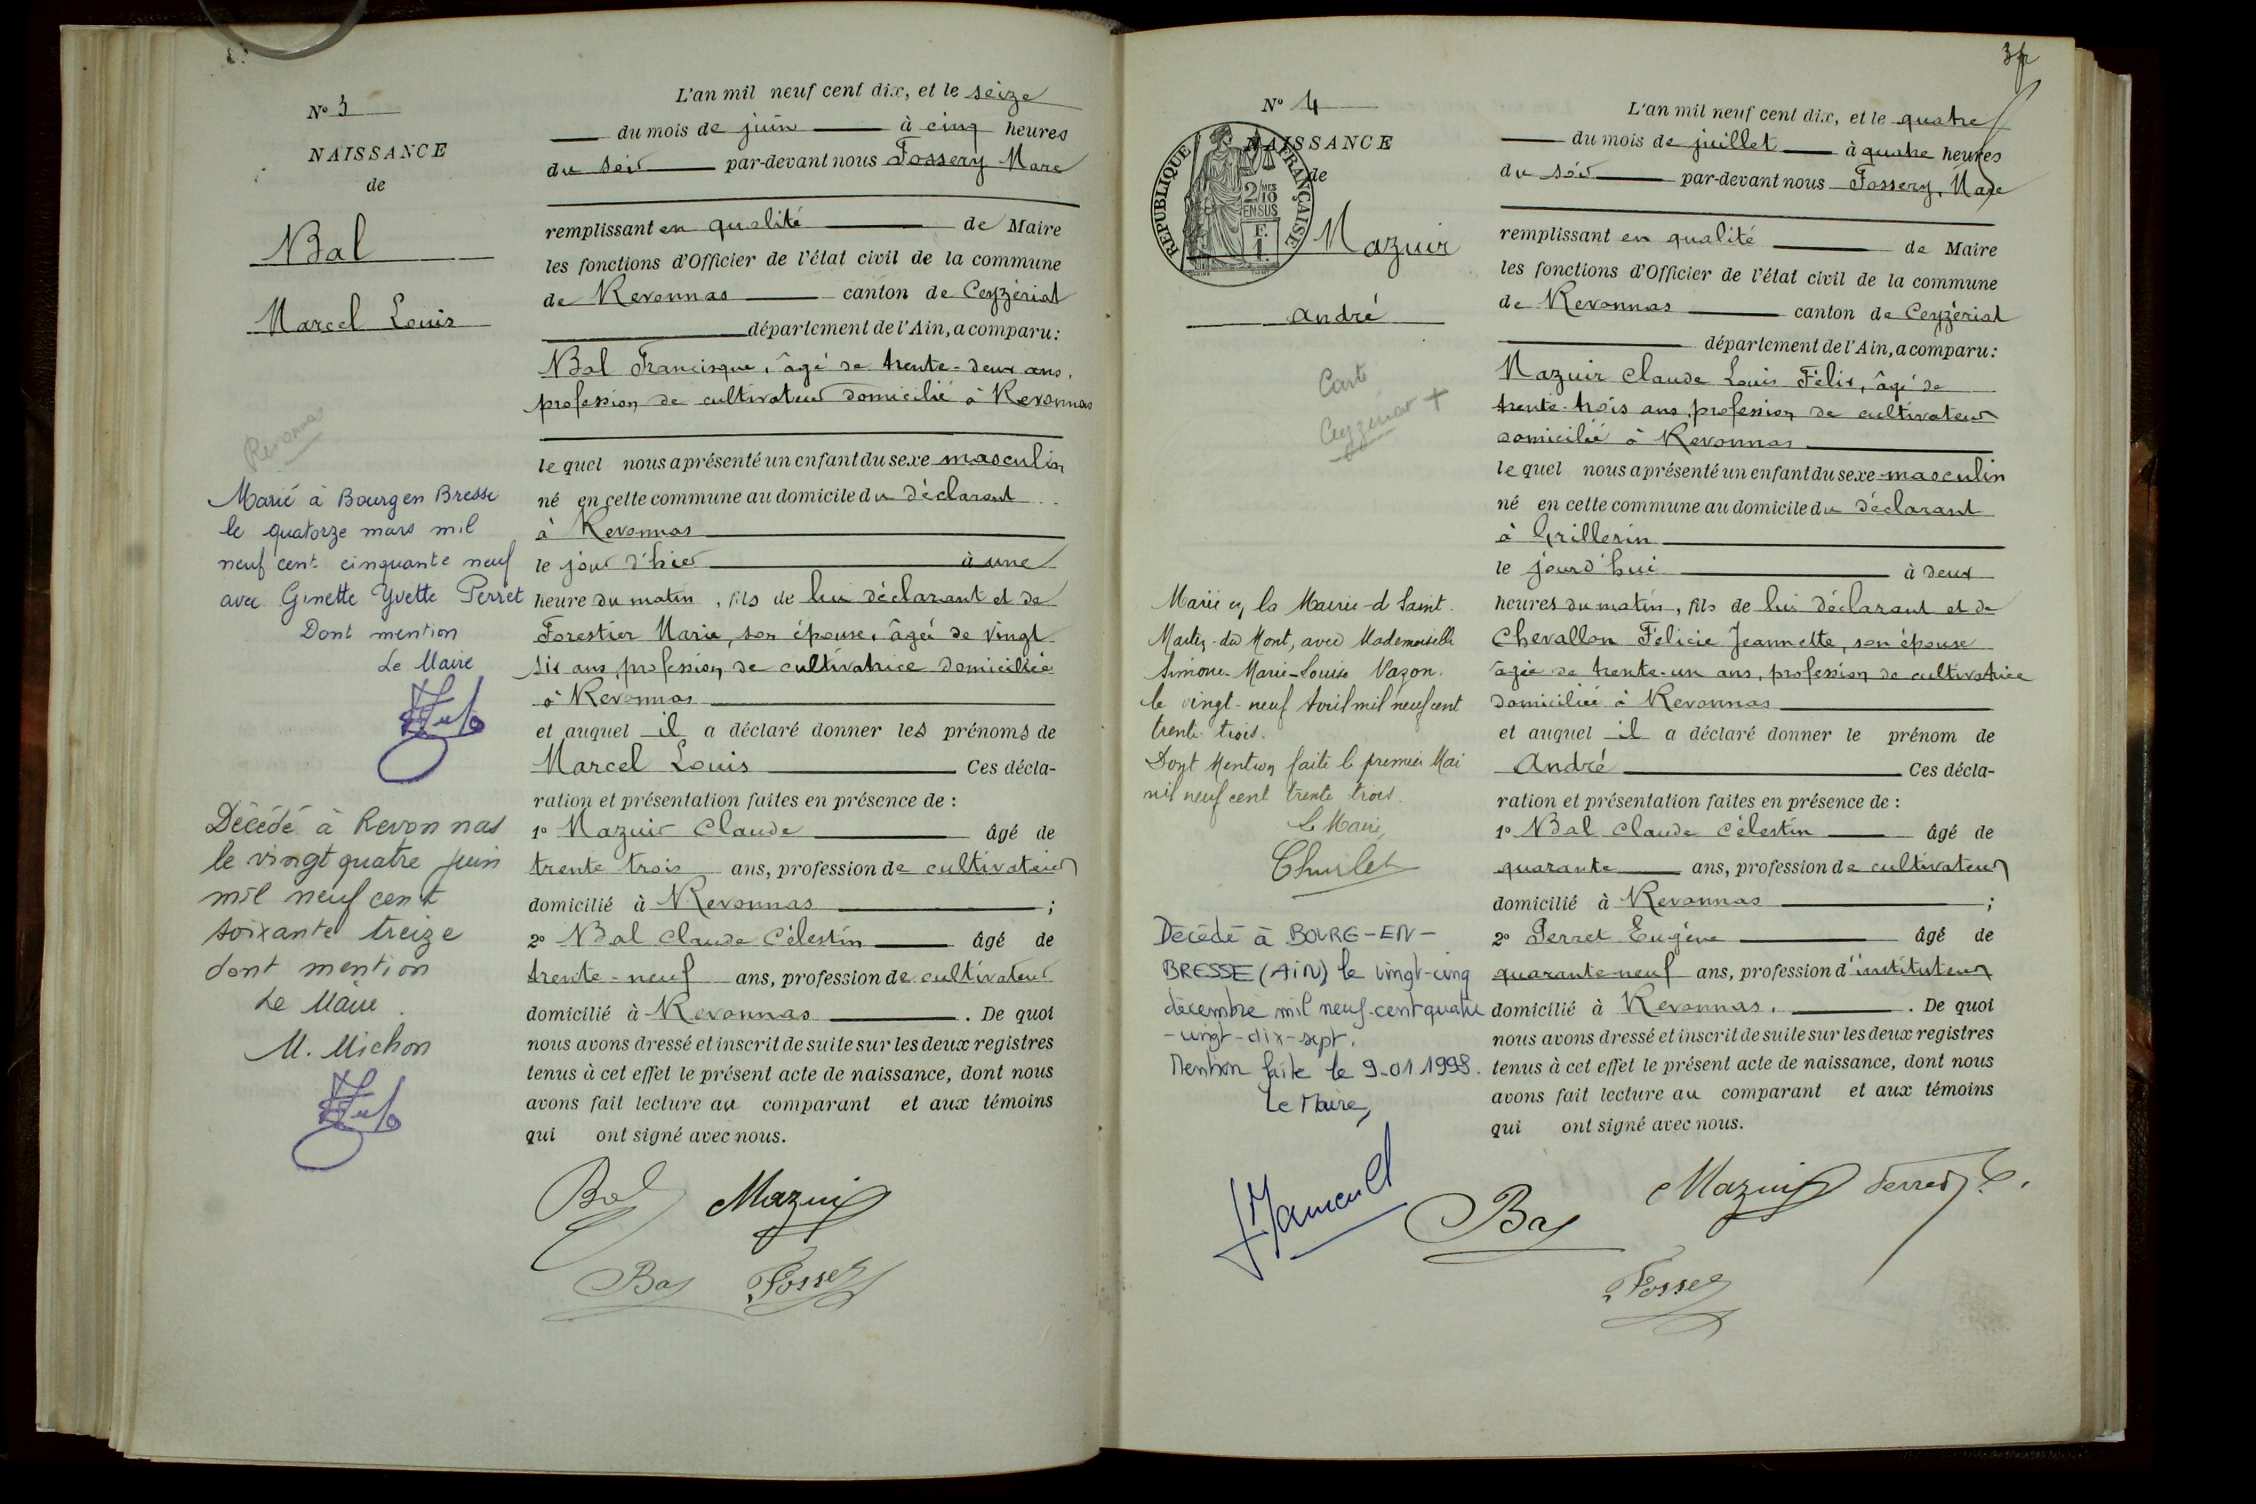 N° 3
NAISSANCE
de
Bal
Marcel Louis
Revonnas
Marié à Bourg en Bresse
le quatorze mars mil
neuf cent cinquante neuf
avec Ginette Yvette Perret
Dont mention
Le Maire
Décédé à Revonnas
le vingt quatre juin
mil neuf cent
soixante treize
dont mention
Le Maire.
M. Michon
L'an mil neuf cent dix, et le seize
du mois de juin à cinq heures
du soir par-devant nous Fossery Marc
remplissant en qualité de Maire
les fonctions d'Officier de l'état civil de la commune
de Revonnas canton de Ceyzériat
département de l'Ain, a comparu :
Bal Francisque, âgé de trente-deux ans,
profession de cultivateur domicilié à Revonnas
lequel nous a présenté un enfant du sexe masculin
né en cette commune au domicile du déclarant
à Revonnas
le jour d'hier à une
heure du matin, fils de lui déclarant et de
Forestier Marie, son épouse, âgée de vingt
six ans, profession de cultivatrice domiciliée
à Revonnas
et auquel il a déclaré donner les prénoms de
Marcel Louis Ces décla-
ration et présentation faites en présence de :
1° Mazuir Claude âgé de
trente trois ans, profession de cultivateur
domicilié à Revonnas ;
2° Bal Claude Célestin âgé de
trente-neuf ans, profession de cultivateur
domicilié à Revonnas . De quoi
nous avons dressé et inscrit de suite sur les deux registres
tenus à cet effet le présent acte de naissance, dont nous
avons fait lecture au comparant et aux témoins
qui ont signé avec nous.
Bal Mazuir
Bal Fossery
N° 4
NAISSANCE
de
RÉPUBLIQUE FRANÇAISE
2/10 MES
EN SUS
F.
1.
Mazuir
André
Carte
Ceyzériat +
Marié à la Mairie de Saint.
Martin-du Mont, avec Mademoiselle
Simone-Marie-Louise Vazon.
le vingt-neuf Avril mil neuf cent
trente trois.
Dont Mention faite le premier Mai
mil neuf cent trente trois.
Le Maire,
Décédé à BOURG-EN-
BRESSE (AIN) le vingt-cinq
décembre mil neuf-cent quatre
-vingt-dix-sept.
Mention faite le 9-01 1998.
Le Maire,
L'an mil neuf cent dix, et le quatre
du mois de juillet à quatre heures
du soir par-devant nous Fossery, Marc
remplissant en qualité de Maire
les fonctions d'Officier de l'état civil de la commune
de Revonnas canton de Ceyzériat
département de l'Ain, a comparu :
Mazuir Claude Louis Félix, âgé de
trente-trois ans, profession de cultivateur
domicilié à Revonnas
lequel nous a présenté un enfant du sexe masculin
né en cette commune au domicile du déclarant
à Grillerin
le jourd'hui à deux
heures du matin, fils de lui déclarant et de
Chevallon Félicie Jeannette, son épouse
âgée de trente-un ans, profession de cultivatrice
domiciliée à Revonnas
et auquel il a déclaré donner le prénom de
André Ces décla-
ration et présentation faites en présence de :
1° Bal Claude Célestin âgé de
quarante ans, profession de cultivateur
domicilié à Revonnas ;
2° Perret Eugène âgé de
quarante-neuf ans, profession d'instituteur
domicilié à Revonnas. . De quoi
nous avons dressé et inscrit de suite sur les deux registres
tenus à cet effet le présent acte de naissance, dont nous
avons fait lecture au comparant et aux témoins
qui ont signé avec nous.
Bal Mazuir Perret E.
Fossery